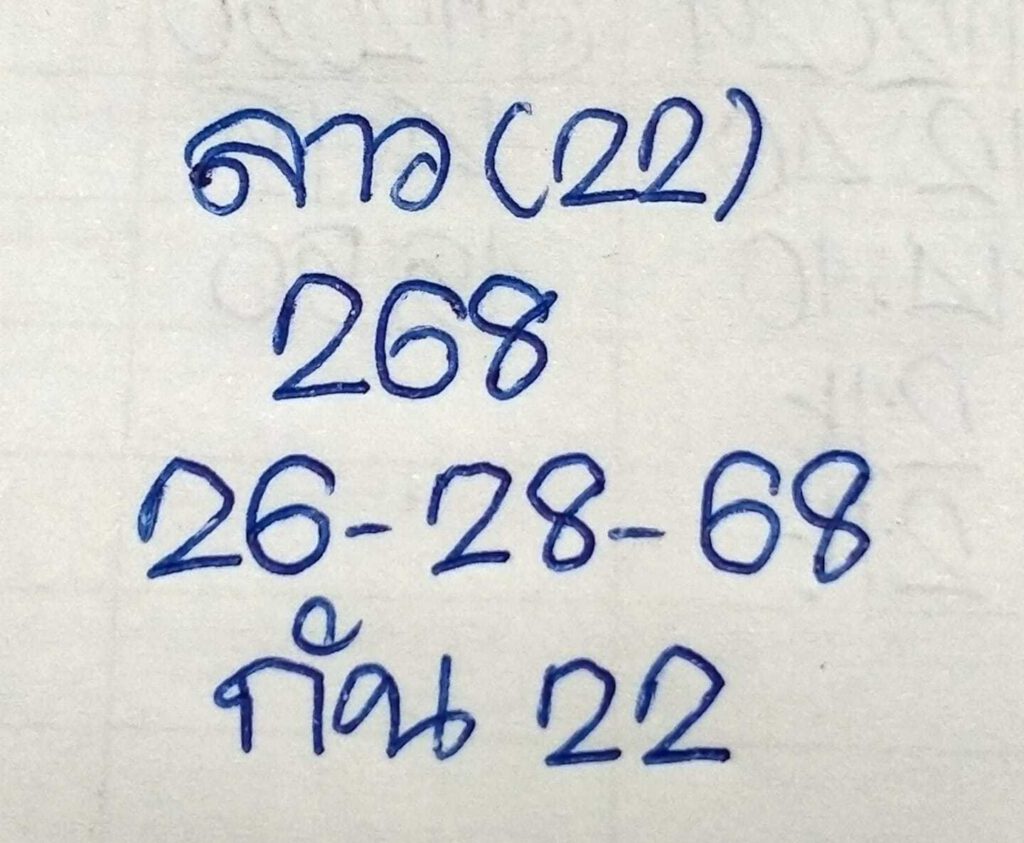 ลาว (22)
268
26-28-68
กัน 22